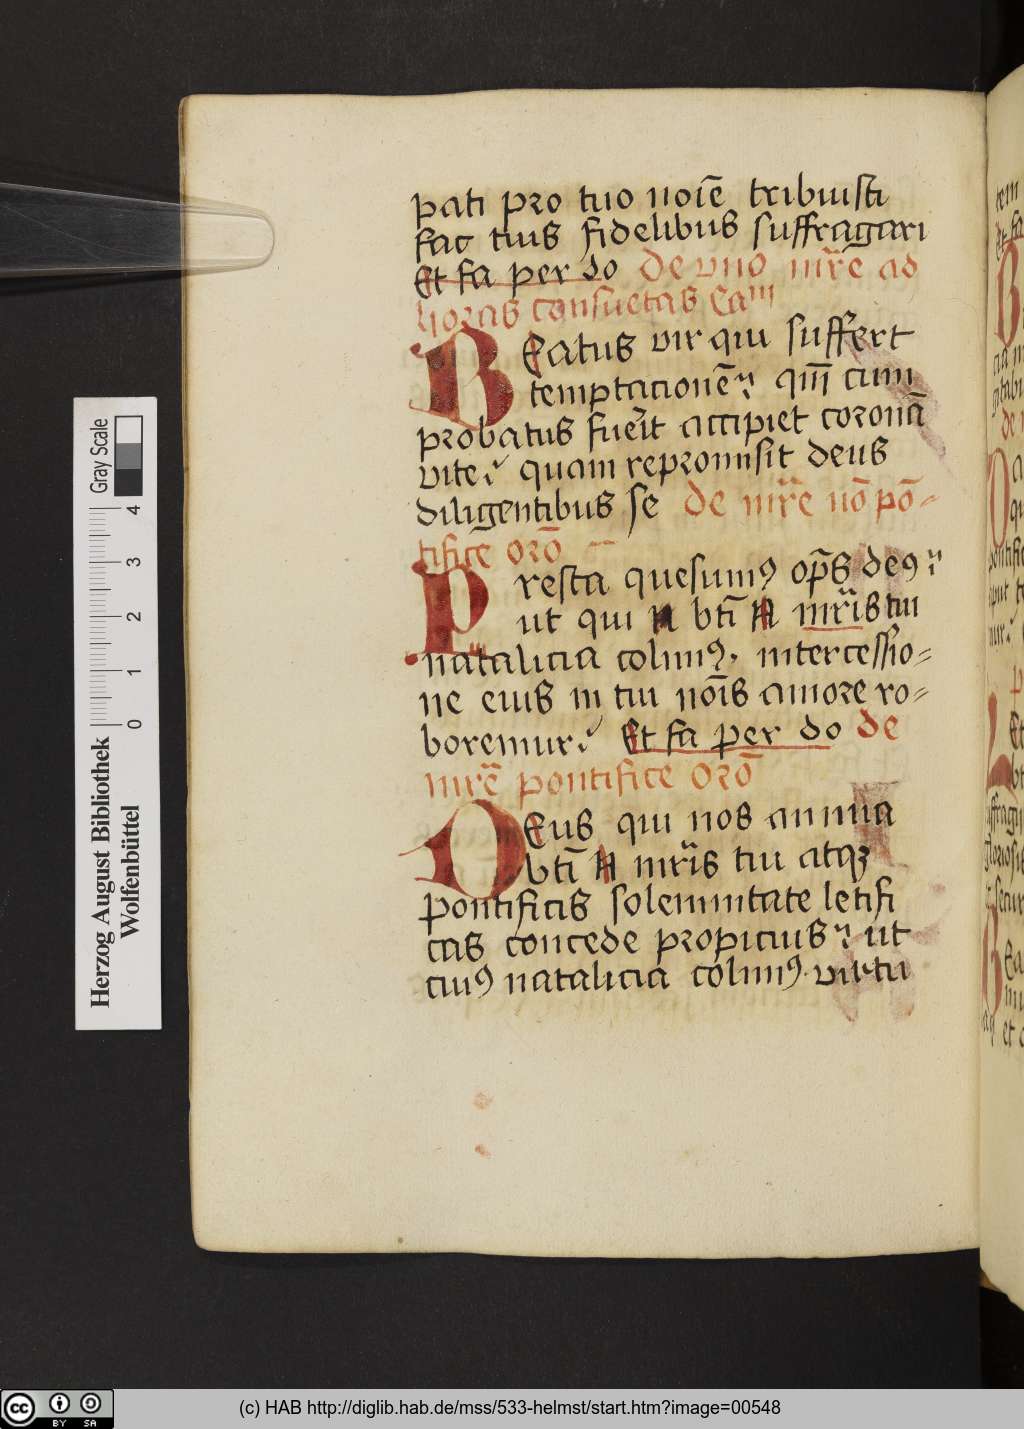 pati pro tuo noīe tribuisti
fac tuis fidelibus suffragari
Et fa per do De vno mr̄e ad
horas consuetas Camͫ
BEatus vir qui suffert
temptacionē qm̄ cum
probatus fuerit accipiet coronā
vite quam repromisit deus
diligentibus se de mr̄e nō pō-
tifice orō
Presta quesumꝰ op̄s deꝰ
ut qui N bt̄i N mr̄is tui
natalicia colimꝰ. intercessio-
ne eius in tui nōis amore ro-
boremur Et fa per do de
mr̄e pontifice Orō
DEus qui nos annua
bt̄i N mr̄is tui atqꝫ
pontificis solemnitate letifi
cas concede propicius ut
ciuꝰ natalicia colimꝰ. virtu
Herzog August Bibliothek
Wolfenbüttel
0 1 2 3 4
Gray Scale
cc BY SA
(c) HAB http://diglib.hab.de/mss/533-helmst/start.htm?image=00548